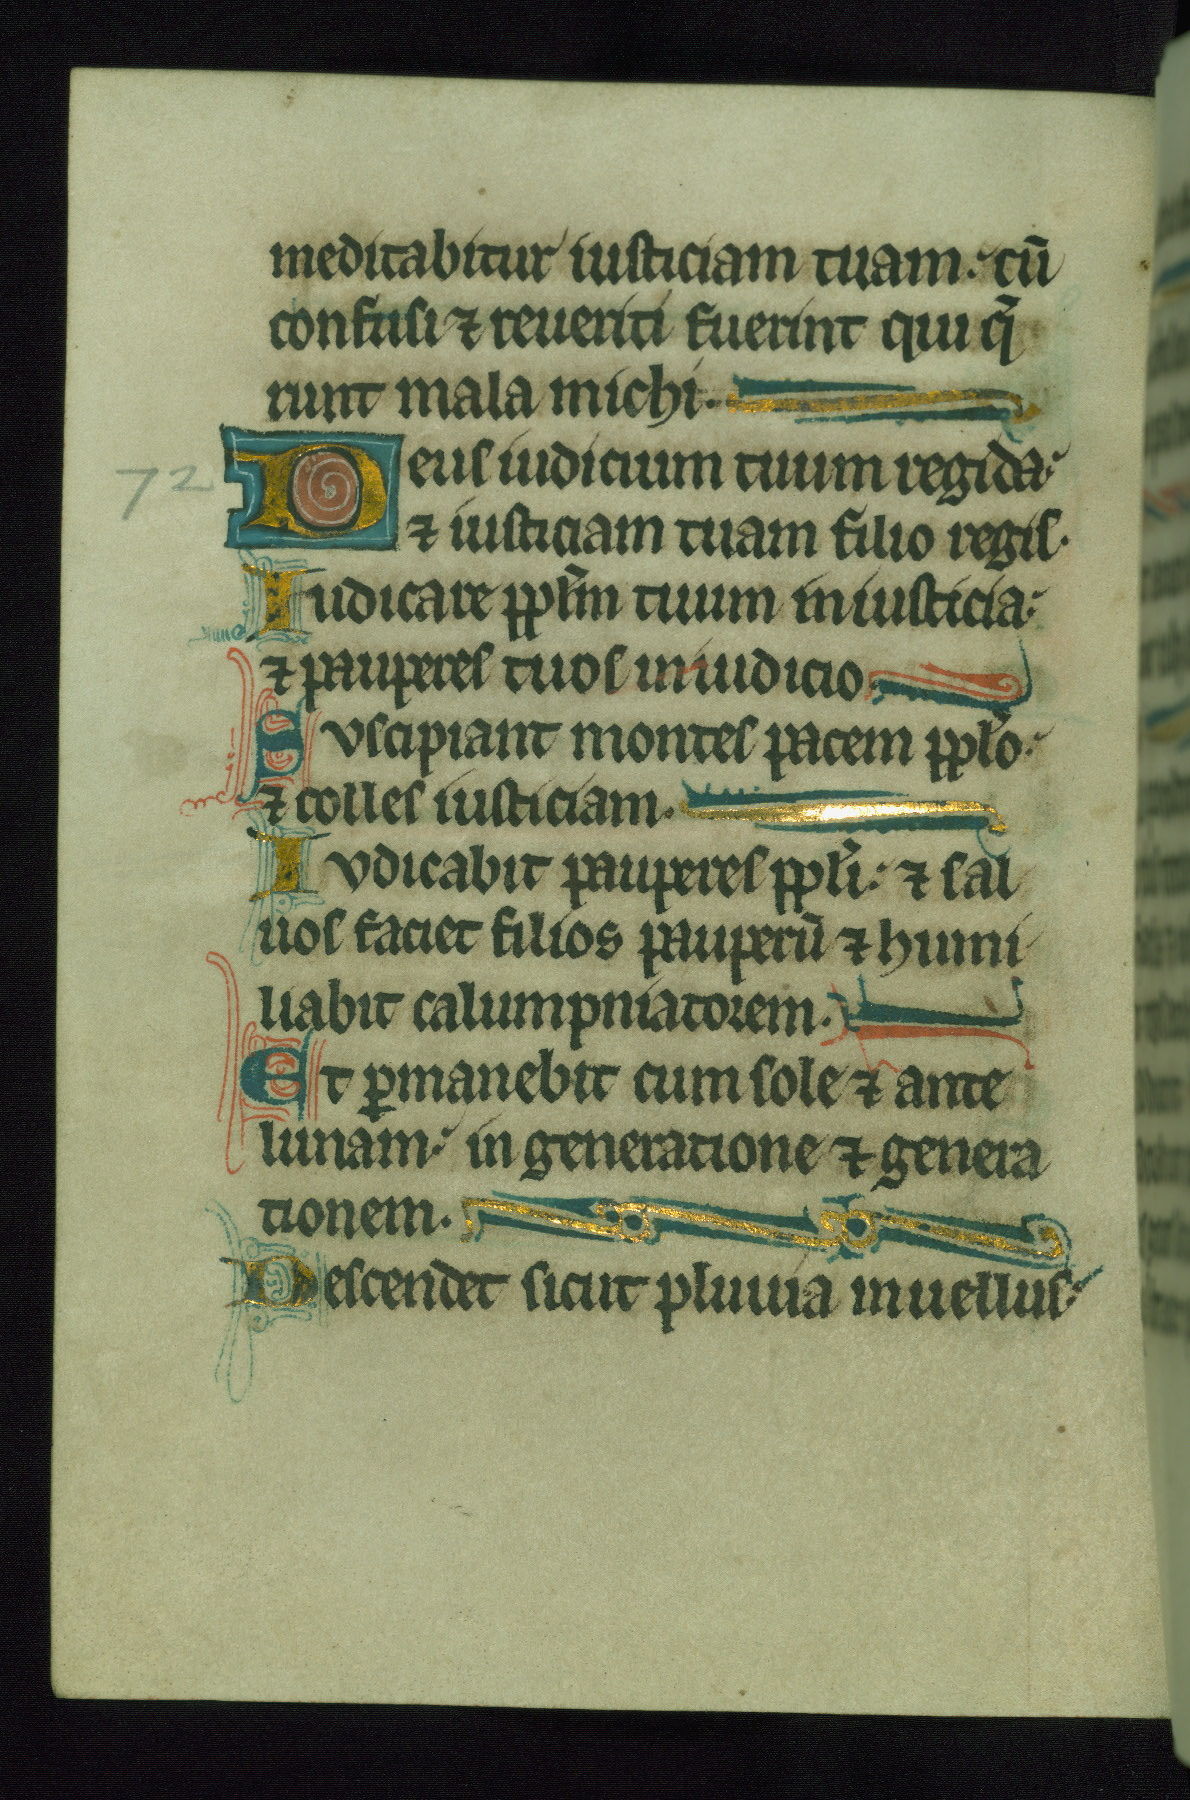 meditabitur iusticiam tuam: cū
confusi ⁊ reueriti fuerint qui q̄
runt mala michi.
72 Deus iudicium tuum regi da:
⁊ iusticiam tuam filio regis.
Iudicare pplm̄ tuum in iusticia:
⁊ pauperes tuos in iudicio.
Suscipiant montes pacem pplō:
⁊ colles iusticiam.
Iudicabit pauperes pplī: ⁊ sal
uos faciet filios pauperū ⁊ humi
liabit calumpniatorem.
Et ꝑmanebit cum sole ⁊ ante
lunam: in generatione ⁊ genera
tionem.
Descendet sicut pluuia in uellus: